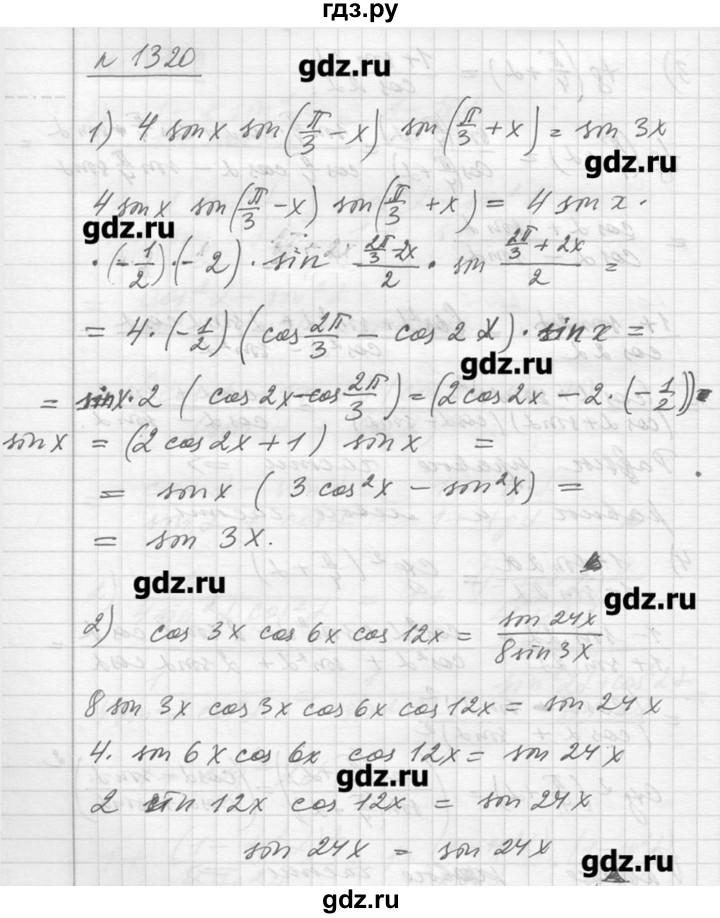 гдз.ру
N 1320
gdz.ru
1) 4 sin x sin(π/3 − x) sin(π/3 + x) = sin 3x
gdz.ru
4 sin x sin(π/3 − x) sin(π/3 + x) = 4 sin x ·
gdz.ru
· (−1/2) · (−2) · sin (2π/3 − 2x)/2 · sin (2π/3 + 2x)/2 =
= 4 · (−1/2) (cos 2π/3 − cos 2x) · sin x =
gdz.ru
= sin x · 2 (cos 2x − cos 2π/3) = (2 cos 2x − 2 · (−1/2)) ·
sin x = (2 cos 2x + 1) sin x =
= sin x (3 cos²x − sin²x) =
= sin 3x.
gdz.ru
gdz.ru
2) cos 3x cos 6x cos 12x = sin 24x / 8 sin 3x
8 sin 3x cos 3x cos 6x cos 12x = sin 24x
4. sin 6x cos 6x cos 12x = sin 24x
gdz.ru
2 sin 12x cos 12x = sin 24x
sin 24x = sin 24x
gdz.ru
gdz.ru